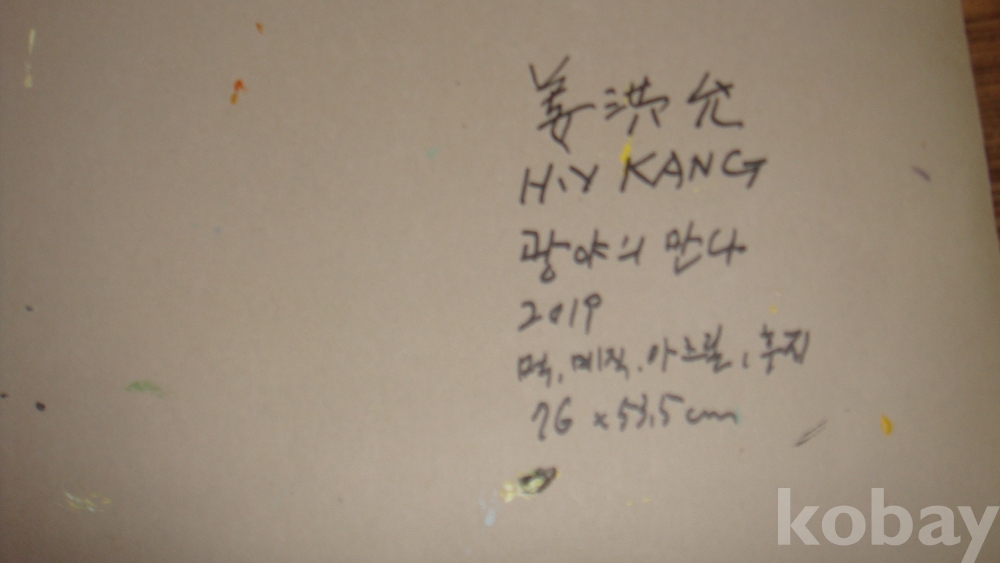 姜洪允
H.Y KANG
광야의 만나
2019
먹, 매직, 아크릴, 홍지
76 x 53.5 cm
kobay